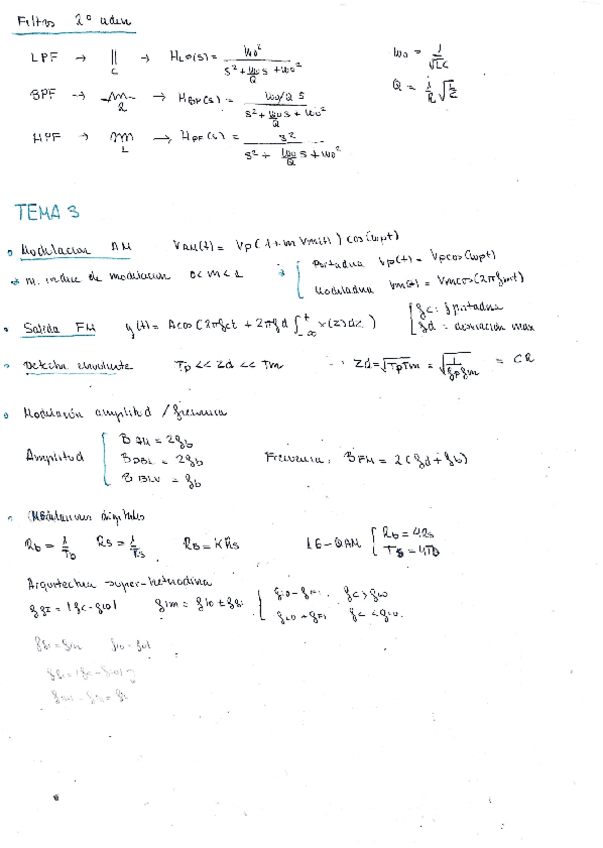 Filtros 2º orden
LPF → C → H_LP(s) = ω0² / (s² + (ω0/Q) s + ω0²)    ω0 = 1/√LC
BPF → R → H_BP(s) = (ω0/Q s) / (s² + (ω0/Q) s + ω0²)    Q = 1/R √(L/C)
HPF → L → H_PF(s) = s² / (s² + (ω0/Q) s + ω0²)
TEMA 3
Modulacion AM    V_AM(t) = Vp(1 + m Vm(t)) cos(ωpt)
m. indice de modulacion 0<m<1    Portadora Vp(t) = Vpcos(ωpt)
Moduladora Vm(t) = Vmcos(2πfmt)
Salida FM    y(t) = Acos(2πfct + 2πfd ∫_-∞^t x(z)dz)    fc: f portadora
fd = desviación max
Detector envolvente    Tp << Zd << Tm    Zd = √TpTm = √(1/fpfm) = CR
Modulación amplitud / frecuencia
Amplitud    B_AM = 2fb
B_DBL = 2fb    Frecuencia: B_FM = 2(fd + fb)
B_BLU = fb
Modulaciones digitales
Rb = 1/Tb    Rs = 1/Ts    Rb = K Rs    16-QAM    Rb = 4Rs
Ts = 4Tb
Arquitectura super-heterodina
f_FI = |fc - flo|    fim = flo ± f_FI    flo - f_FI    fc > flo
flo + f_FI    fc < flo